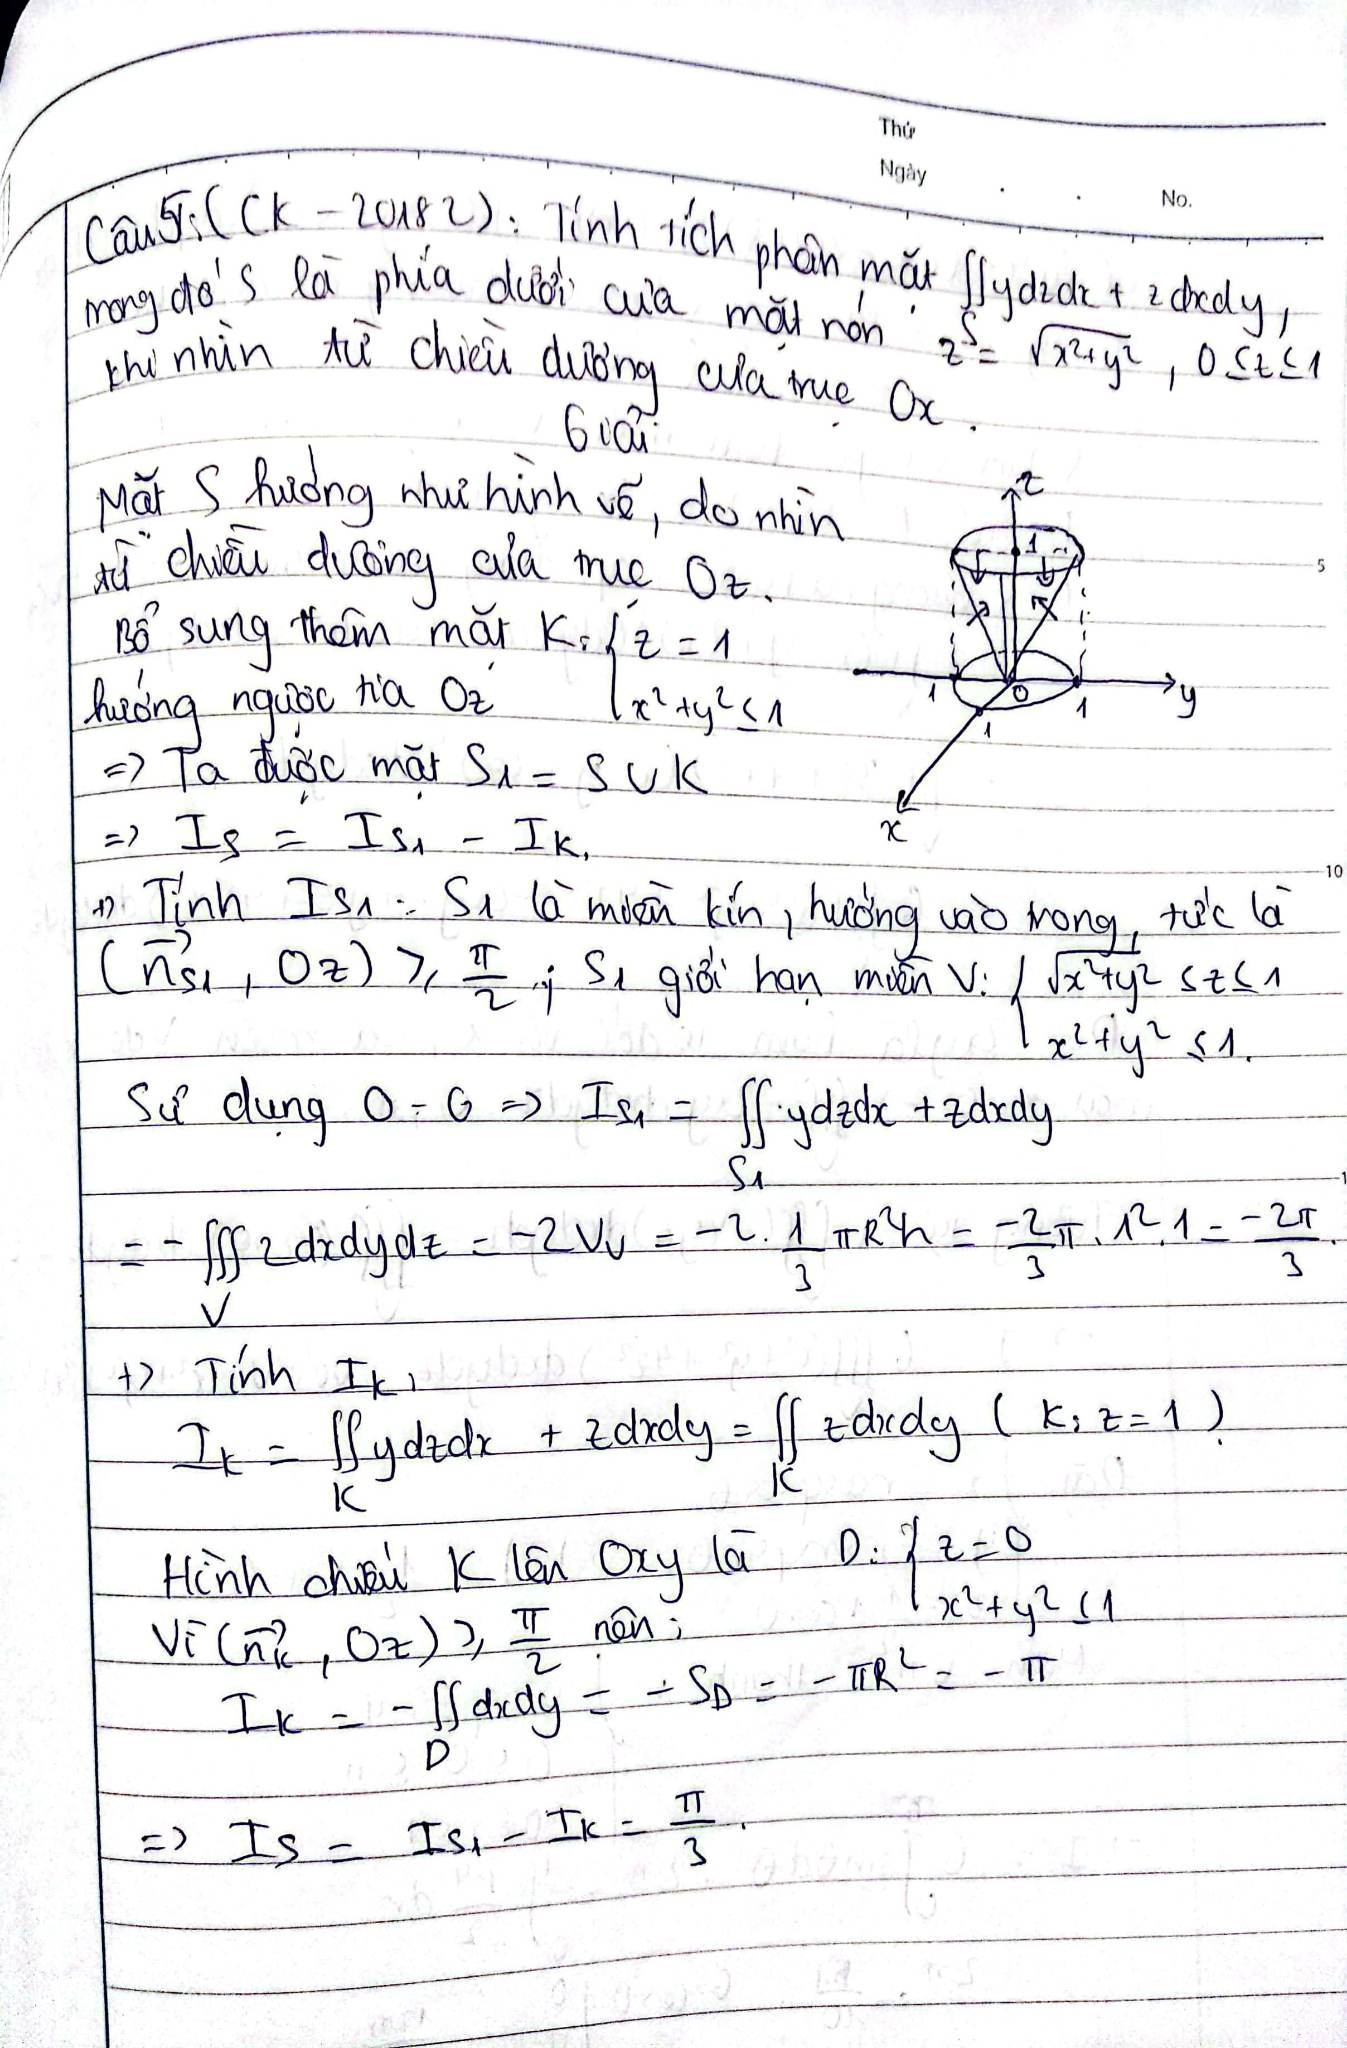 Thứ
Ngày . .
No.
Câu 5: (CK - 20182): Tính tích phân mặt ∬ydzdx + zdxdy,
S
trong đó S là phía dưới của mặt nón z = √x²+y², 0 ≤ z ≤ 1
khi nhìn từ chiều dương của trục Ox.
Giải
Mặt S hướng như hình vẽ, do nhìn
từ chiều dương của trục Oz.
Bổ sung thêm mặt K: { z = 1
hướng ngược tia Oz x²+y² ≤ 1
=> Ta được mặt S1 = S ∪ K
=> IS = IS1 - IK.
z
1
1
O
1
y
1
x
5
10
+) Tính IS1: S1 là miền kín, hướng vào trong, tức là
(n⃗S1, Oz) ≥ π/2; S1 giới hạn miền V: { √x²+y² ≤ z ≤ 1
x²+y² ≤ 1.
Sử dụng O-G => IS1 = ∬ydzdx + zdxdy
S1
= -∭2dxdydz = -2VV = -2. 1/3 πR²h = -2/3 π. 1². 1 = -2π/3.
V
+) Tính IK,
IK = ∬ydzdx + zdxdy = ∬zdxdy (K: z=1)
K K
Hình chiếu K lên Oxy là D: { z=0
x²+y² ≤ 1
Vì (n⃗K, Oz) ≥ π/2 nên:
IK = -∬dxdy = -SD = -πR² = -π
D
=> IS = IS1 - IK = π/3.